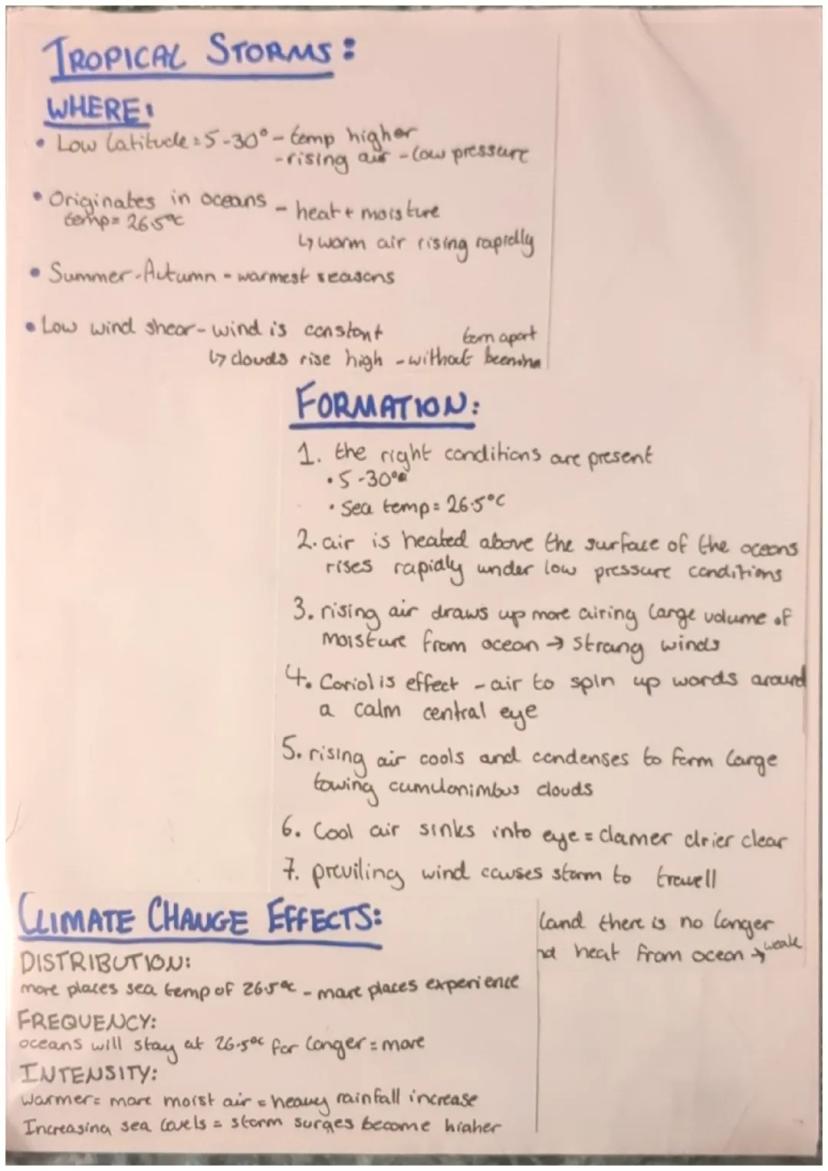 TROPICAL STORMS:
WHERE:
• Low latitude = 5-30° - temp higher
- rising air - low pressure
• Originates in oceans - heat + moisture
temp = 26.5°C
↳ warm air rising rapidly
• Summer-Autumn - warmest seasons
• Low wind shear - wind is constant
torn apart
↳ clouds rise high - without
FORMATION:
1. the right conditions are present
• 5-30°
• Sea temp = 26.5°C
2. air is heated above the surface of the oceans
rises rapidly under low pressure conditions
3. rising air draws up more airing large volume of
moisture from ocean → strang winds
4. Coriolis effect - air to spin up words around
a calm central eye
5. rising air cools and condenses to form large
towing cumulonimbus clouds
6. Cool air sinks into eye = clamer drier clear
7. previling wind causes storm to travell
land there is no longer
heat from ocean → weak
CLIMATE CHANGE EFFECTS:
DISTRIBUTION:
more places sea temp of 26.5°C - more places experience
FREQUENCY:
oceans will stay at 26.5°C for longer = more
INTENSITY:
Warmer = more moist air = heavy rainfall increase
Increasing sea levels = storm surges become higher